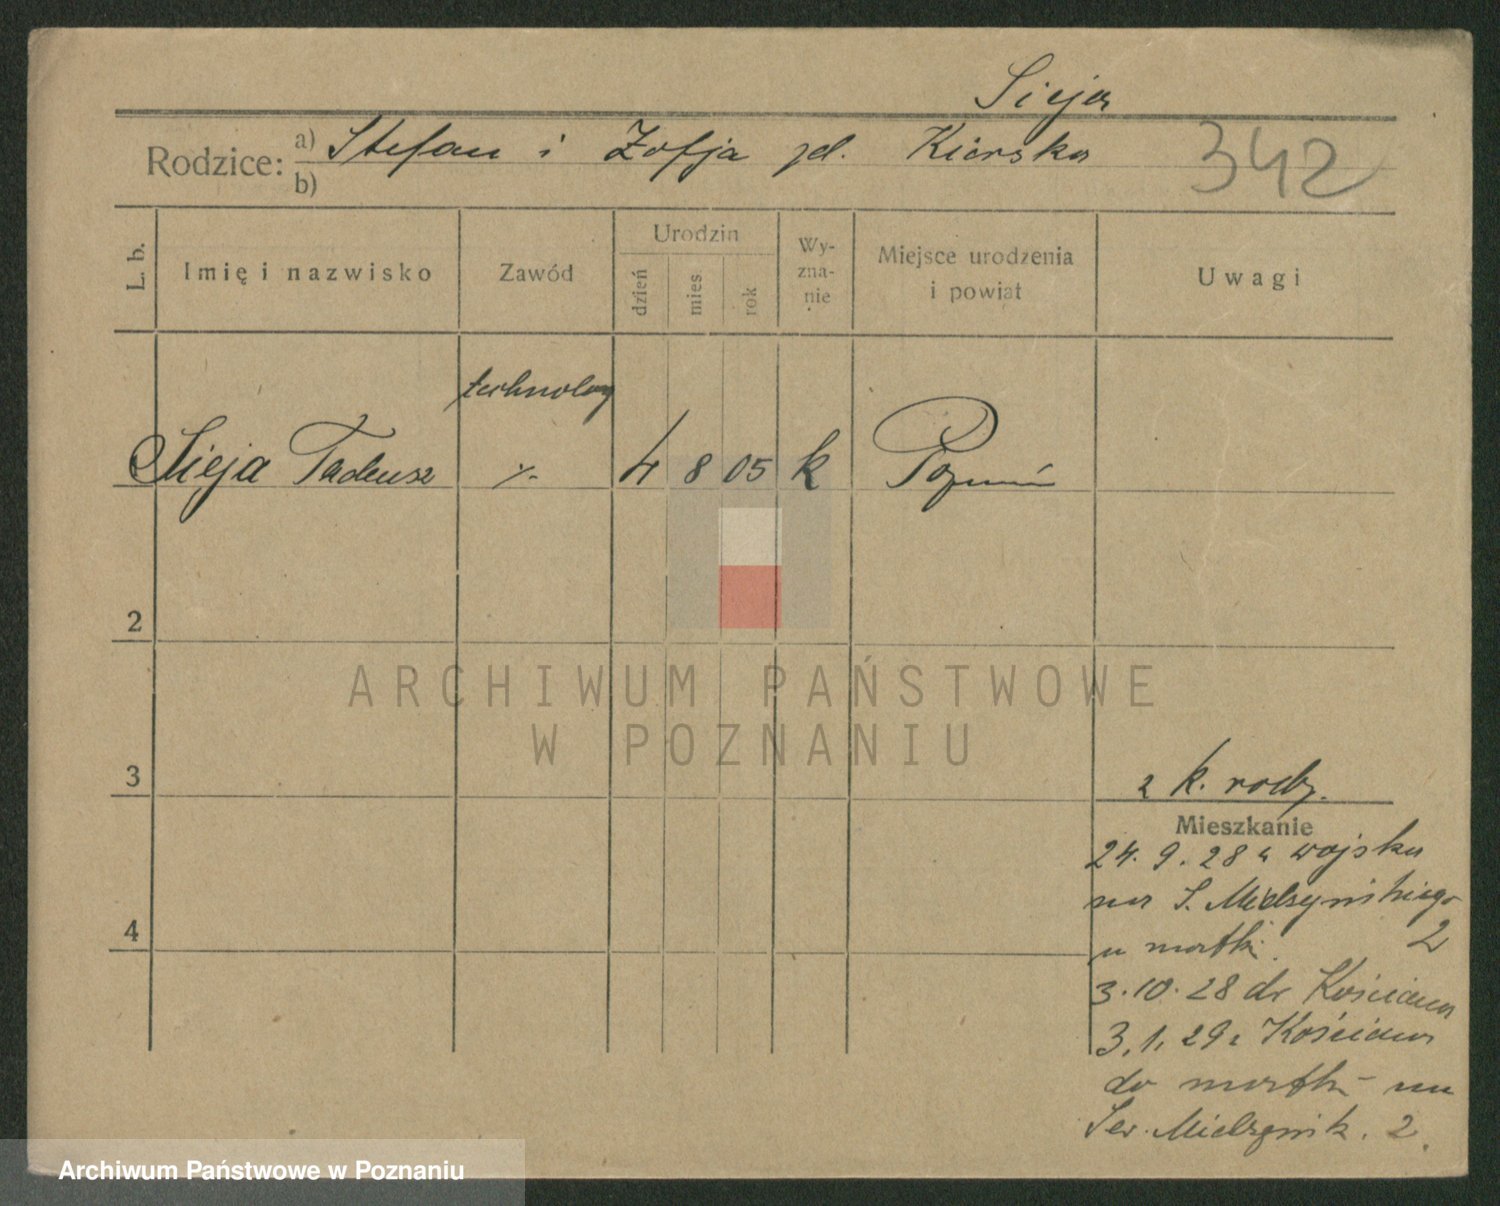 Sieja
Rodzice: a) Stefan i Zofja zd. Kierska 342
b)
L. b. Imię i nazwisko Zawód Urodzin dzień mies rok Wy-zna-nie Miejsce urodzenia i powiat Uwagi
technolog
Sieja Tadeusz ⁒ 4 8 05 k Poznań
2
ARCHIWUM PAŃSTWOWE
W POZNANIU
3
z k. rodz.
Mieszkanie
24. 9. 28 z wojska
na S. Mielżyńskiego
4
u matki 2
3. 10. 28 do Kościana
3. 1. 29 z Kościana
do matki na
Sew. Mielżyńsk. 2.
Archiwum Państwowe w Poznaniu